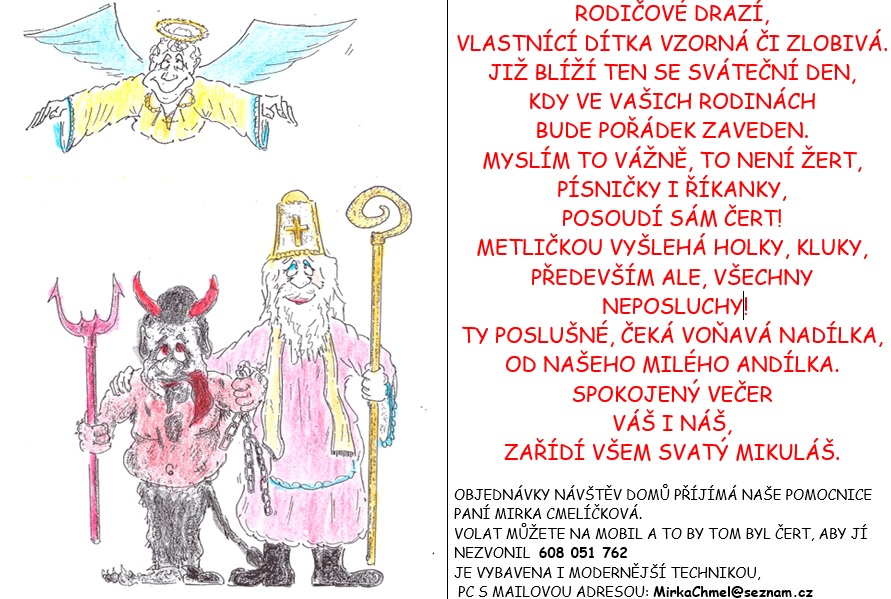 RODIČOVÉ DRAZÍ,
VLASTNÍCÍ DÍTKA VZORNÁ ČI ZLOBIVÁ.
JIŽ BLÍŽÍ TEN SE SVÁTEČNÍ DEN,
KDY VE VAŠICH RODINÁCH
BUDE POŘÁDEK ZAVEDEN.
MYSLÍM TO VÁŽNĚ, TO NENÍ ŽERT,
PÍSNIČKY I ŘÍKANKY,
POSOUDÍ SÁM ČERT!
METLIČKOU VYŠLEHÁ HOLKY, KLUKY,
PŘEDEVŠÍM ALE, VŠECHNY
NEPOSLUCHY!
TY POSLUŠNÉ, ČEKÁ VOŇAVÁ NADÍLKA,
OD NAŠEHO MILÉHO ANDÍLKA.
SPOKOJENÝ VEČER
VÁŠ I NÁŠ,
ZAŘÍDÍ VŠEM SVATÝ MIKULÁŠ.
OBJEDNÁVKY NÁVŠTĚV DOMŮ PŘÍJÍMÁ NAŠE POMOCNICE
PANÍ MIRKA CMELÍČKOVÁ.
VOLAT MŮŽETE NA MOBIL A TO BY TOM BYL ČERT, ABY JÍ
NEZVONIL 608 051 762
JE VYBAVENA I MODERNĚJŠÍ TECHNIKOU,
PC S MAILOVOU ADRESOU: MirkaChmel@seznam.cz